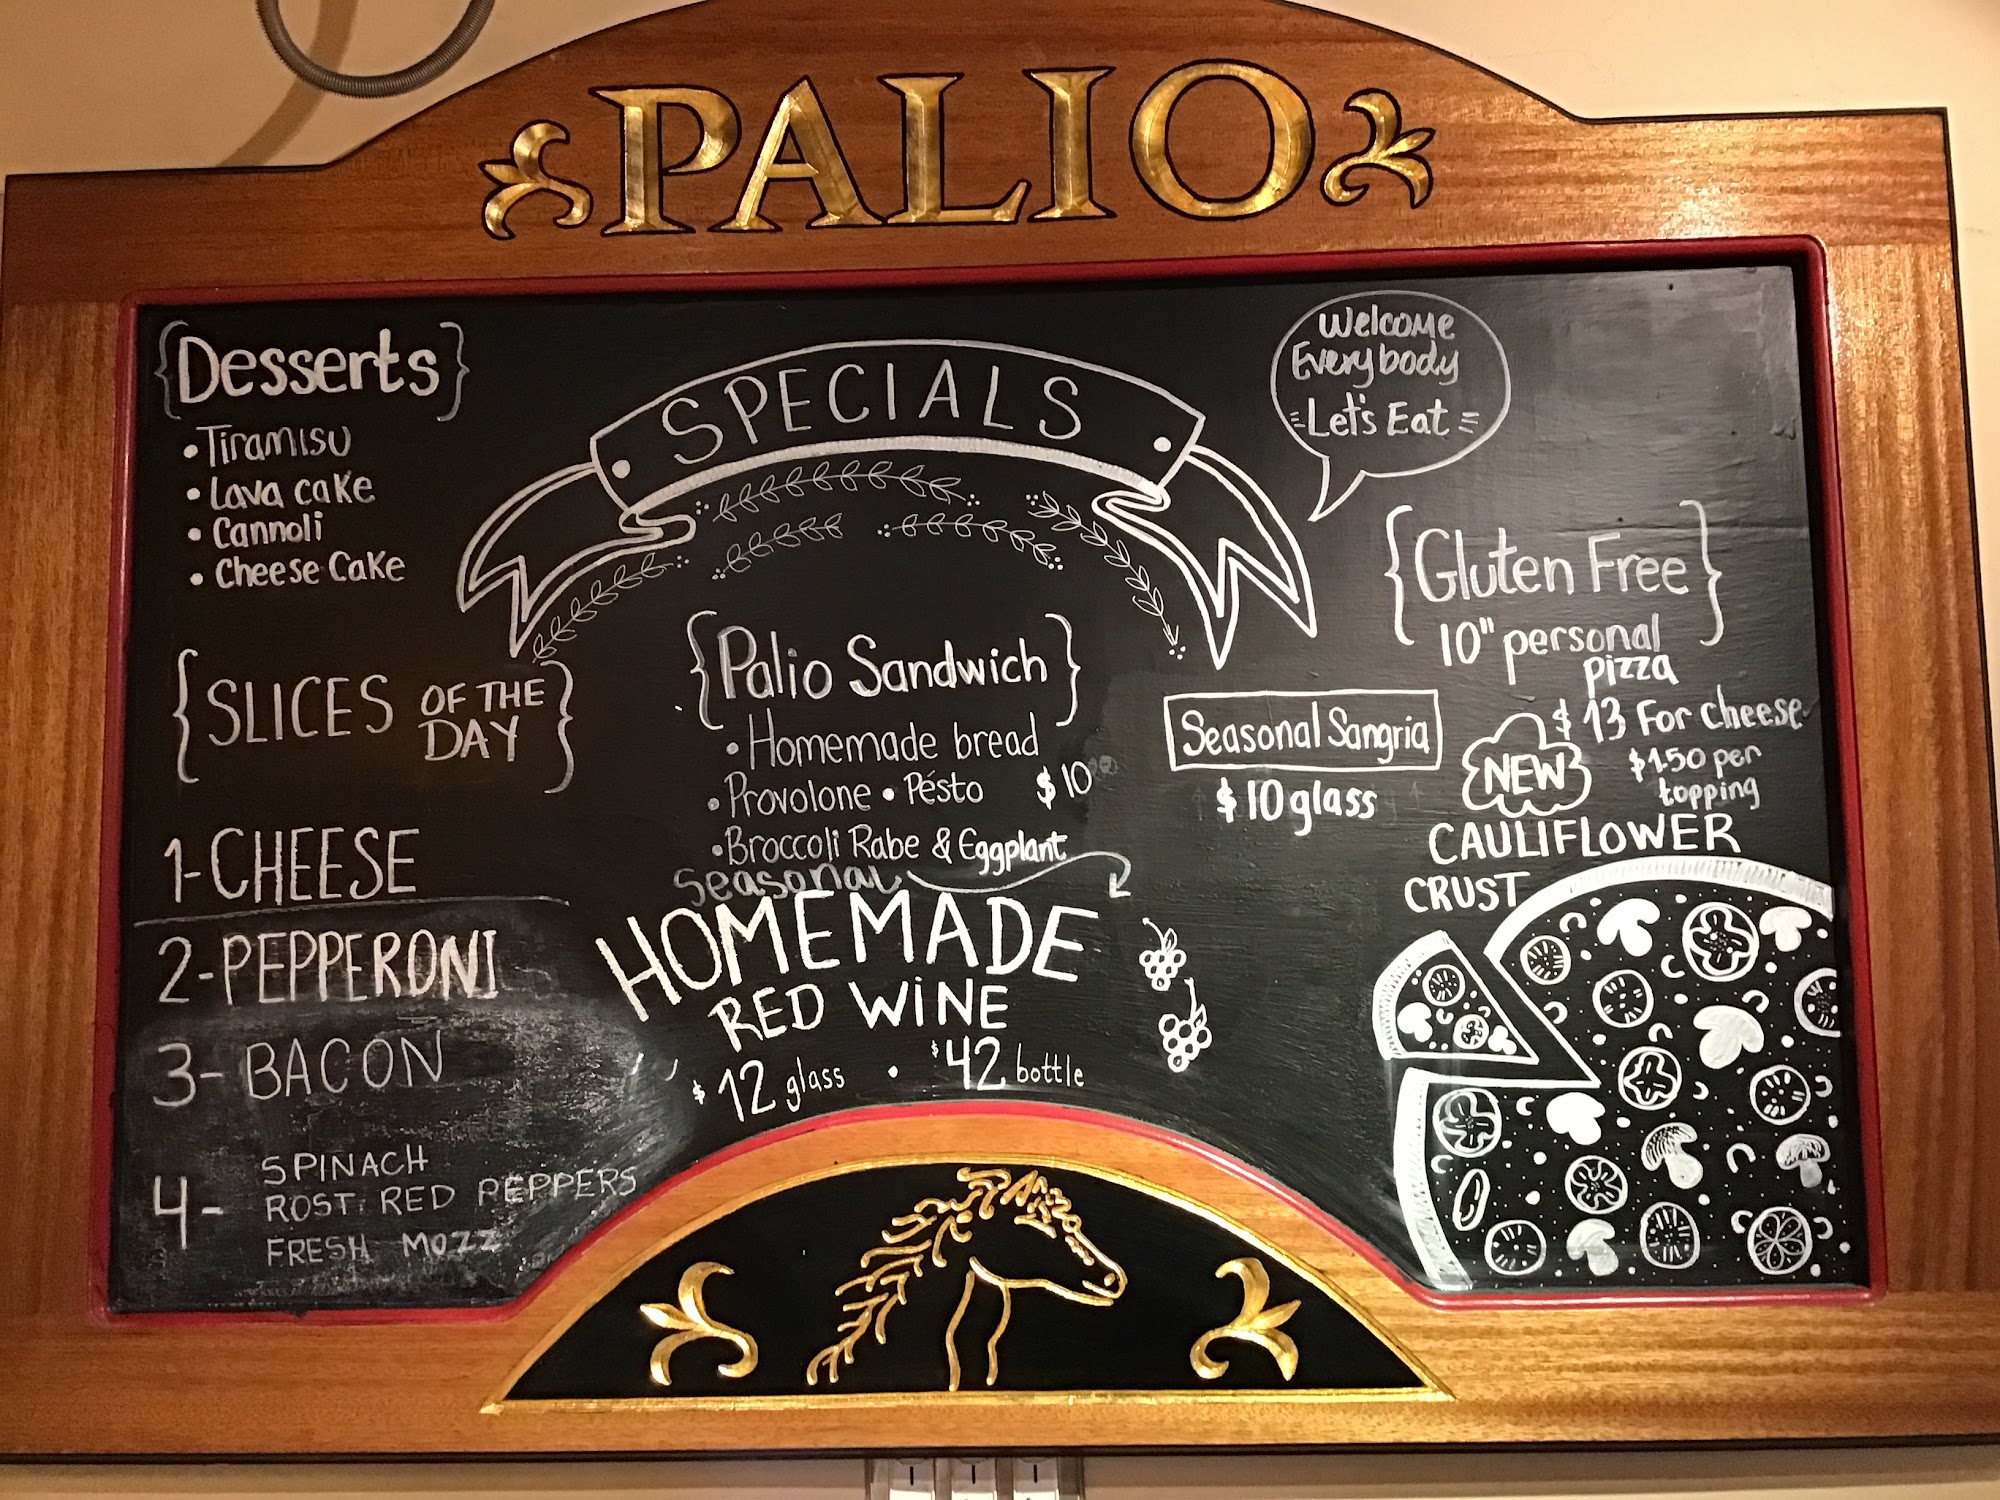 PALIO
Desserts
• Tiramisu
• Lava cake
• Cannoli
• Cheese Cake
SLICES OF THE
DAY
1-CHEESE
2-PEPPERONI
3-BACON
4-
SPINACH
ROST. RED PEPPERS
FRESH MOZZ
SPECIALS
Palio Sandwich
• Homemade bread
• Provolone • Pésto $10.00
• Broccoli Rabe & Eggplant
Seasonal
HOMEMADE
RED WINE
$12 glass • $42 bottle
Welcome
Everybody
=Let's Eat=
Seasonal Sangria
$10 glass
Gluten Free
10" personal
pizza
$13 For Cheese
NEW
$1.50 per
topping
CAULIFLOWER
CRUST